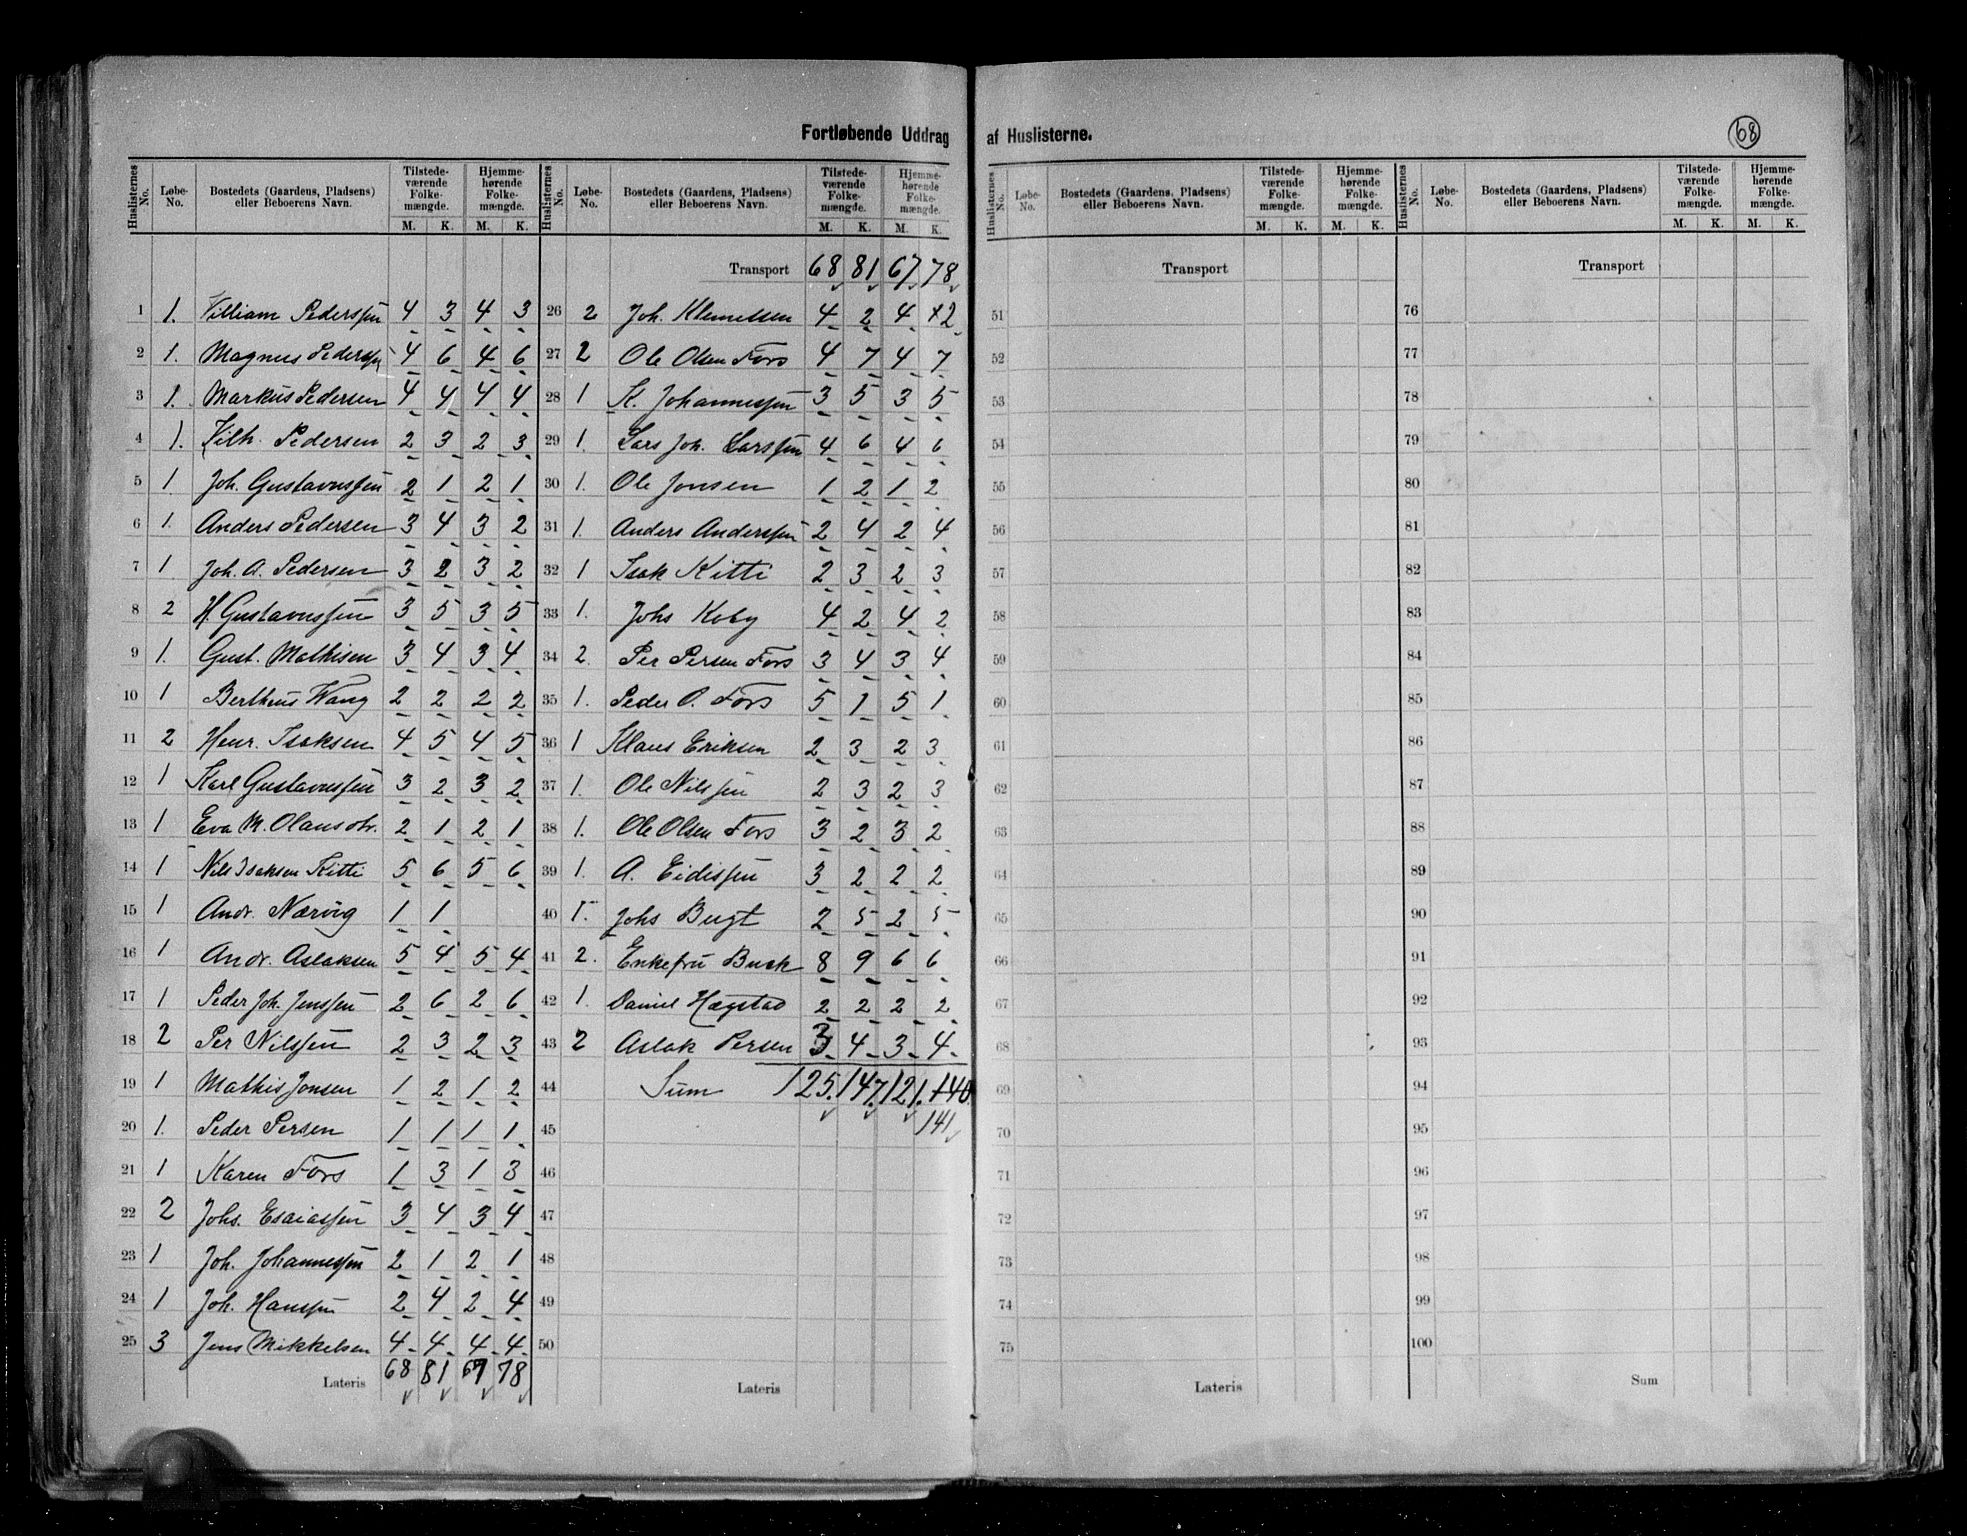 Fortløbende Uddrag af Huslisterne.
68
Huslisternes No. Løbe-No. Bostedets (Gaardens, Pladsens) eller Beboerens Navn. Tilstedeværende Folkemængde. M. K. Hjemmehørende Folkemængde. M. K.
1 1. Villiam Pederssen 4 3 4 3
2 1. Magnus Pederssen 4 6 4 6
3 1. Markus Pedersen 4 4 4 4
4 1. Vilh. Pedersen 2 3 2 3
5 1 Joh. Gustavussen 2 1 2 1
6 1. Anders Pedersen 3 4 3 2
7 1 Joh. A. Pedersen 3 2 3 2
8 2 H. Gustavussen 3 5 3 5
9 1. Gust. Mathisen 3 4 3 4
10 1 Bertheus Wang 2 2 2 2
11 2 Henr. Isaksen 4 5 4 5
12 1 Karl Gustavussen 3 2 3 2
13 1 Eva M. Olausdtr. 2 1 2 1
14 1 Nils Isaksen Kitti 5 6 5 6
15 1 Andr. Nærvig 1 1
16 1 Andr. Aslaksen 5 4 5 4
17 1 Peder Joh. Jenssen 2 6 2 6
18 2 Per Nilssen 2 3 2 3
19 1 Mathis Jonsen 1 2 1 2
20 1. Peder Persen 1 1 1 1
21 1 Karen Fors 1 3 1 3
22 2 Johs. Esaiassen 3 4 3 4
23 1 Joh. Johannessen 2 1 2 1
24 1 Joh. Hanssen 2 4 2 4
25 3 Jens Mikkelsen 4 4 4 4
Lateris 68 81 67 78
Huslisternes No. Løbe-No. Bostedets (Gaardens, Pladsens) eller Beboerens Navn. Tilstedeværende Folkemængde. M. K. Hjemmehørende Folkemængde. M. K.
Transport 68 81 67 78
26 2 Joh. Klemetsen 4 2 4 2
27 2 Ole Olsen Fors 4 7 4 7
28 1 K. Johannessen 3 5 3 5
29 1. Lars Joh. Larssen 4 6 4 6
30 1. Ole Jonsen 1 2 1 2
31 1. Anders Anderssen 2 4 2 4
32 1 Isak Kitti 2 3 2 3
33 1. Johs Koby 4 2 4 2
34 2. Per Persen Fors 3 4 3 4
35 1. Peder O. Fors 5 1 5 1
36 1 Klaus Eriksen 2 3 2 3
37 1. Ole Nilssen 2 3 2 3
38 1. Ole Olsen Fors 3 2 3 2
39 1. A. Eidissen 3 2 2 2
40 1. Johs Bugt 2 5 2 5
41 2. Enkefru Buck 8 9 6 6
42 1. Daniel Hægstad 2 2 2 2
43 2 Aslak Persen 3 4 3 4
44 Sum 125 147 121 140
45 141
46
47
48
49
50
Lateris
Huslisternes No. Løbe-No. Bostedets (Gaardens, Pladsens) eller Beboerens Navn. Tilstedeværende Folkemængde. M. K. Hjemmehørende Folkemængde. M. K.
Transport
51
52
53
54
55
56
57
58
59
60
61
62
63
64
65
66
67
68
69
70
71
72
73
74
75
Lateris
Huslisternes No. Løbe-No. Bostedets (Gaardens, Pladsens) eller Beboerens Navn. Tilstedeværende Folkemængde. M. K. Hjemmehørende Folkemængde. M. K.
Transport
76
77
78
79
80
81
82
83
84
85
86
87
88
89
90
91
92
93
94
95
96
97
98
99
100
Sum